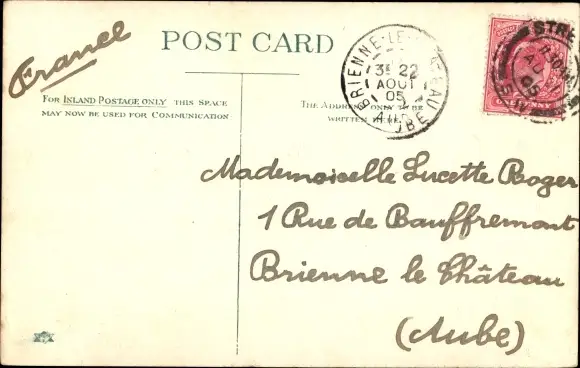 France
POST CARD
FOR INLAND POSTAGE ONLY THIS SPACE
MAY NOW BE USED FOR COMMUNICATION
THE ADDRESS ONLY TO BE
WRITTEN HERE
BRIENNE-LE-CHATEAU
3E 22
AOUT
05
AUBE
STRE
AU
05
S.W
ONE PENNY
Mademoiselle Lucette Roger
1 Rue de Bauffremont
Brienne le Château
(Aube)